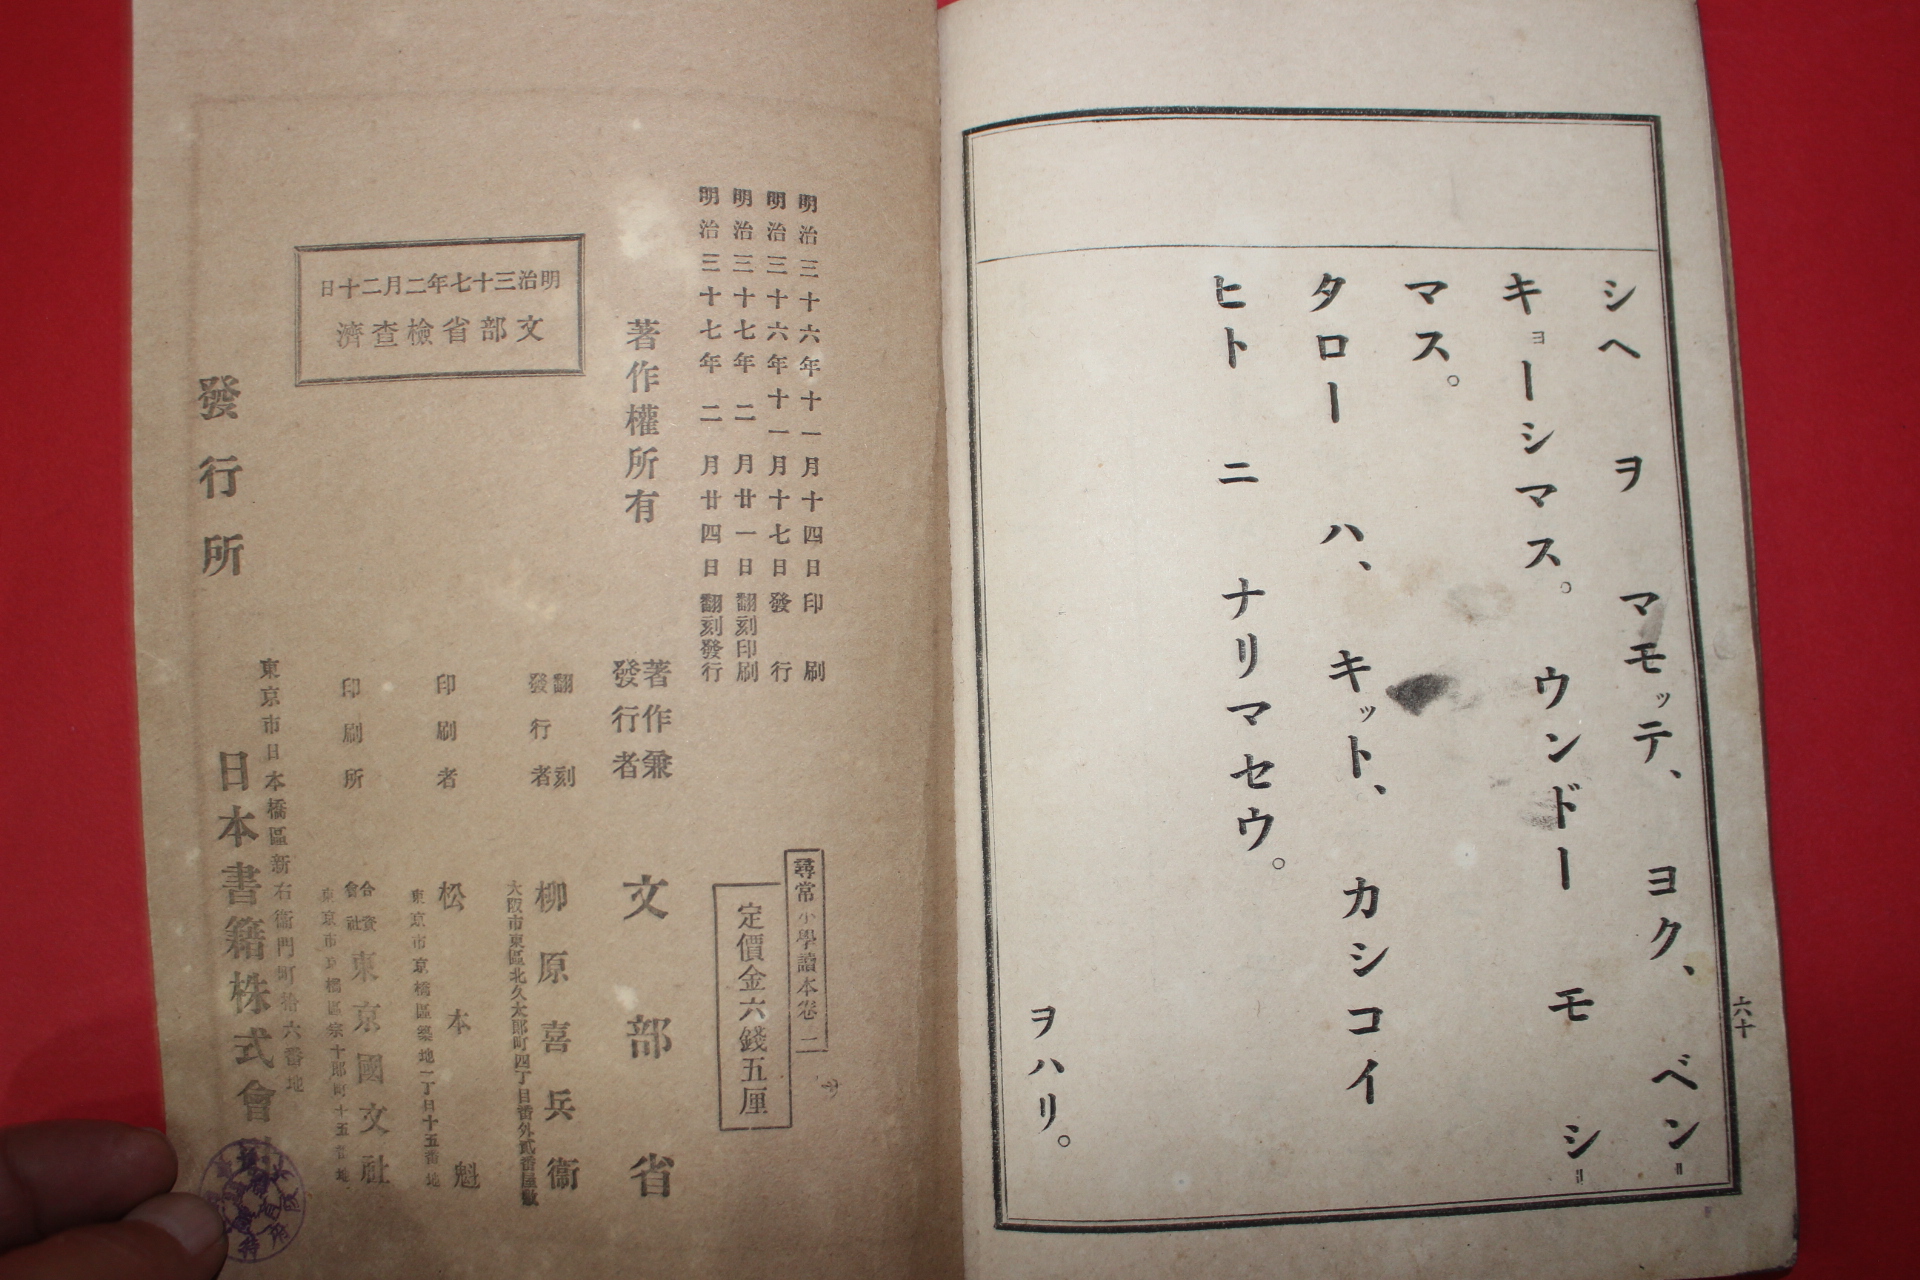 シヘ ヲ マモッテ、ヨク、ベン=
キョーシマス。 ウンドー モ シ=
マス。
タロー ハ、キット、カシコイ
ヒト ニ ナリマセウ。
ヲハリ。
六十
明治三十六年十一月十四日印刷
明治三十六年十一月十七日發行
明治三十七年二月廿一日翻刻印刷
明治三十七年二月廿四日翻刻發行
尋常小學讀本卷二
定價金六錢五厘
著作權所有
著作兼
發行者
文部省
翻刻
發行者
柳原喜兵衞
大阪市東區北久太郎町四丁目番外貳番屋敷
印刷者
松本魁
東京市京橋區築地一丁目十五番地
印刷所
合資
會社
東京國文社
東京市京橋區宗十郎町十五番地
明治三十七年二月二十日
文部省檢查濟
東京市日本橋區新右衞門町拾六番地
發行所
日本書籍株式會